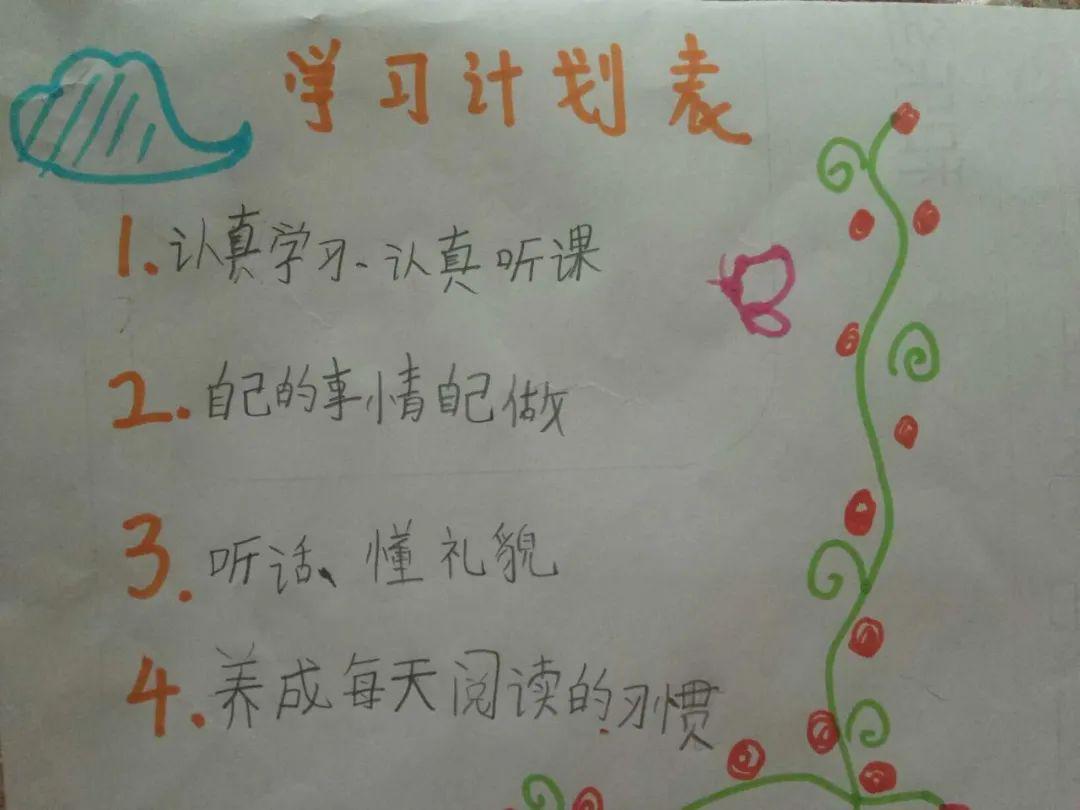 学习计划表
1.认真学习、认真听课
2.自己的事情自己做
3.听话、懂礼貌
4.养成每天阅读的习惯